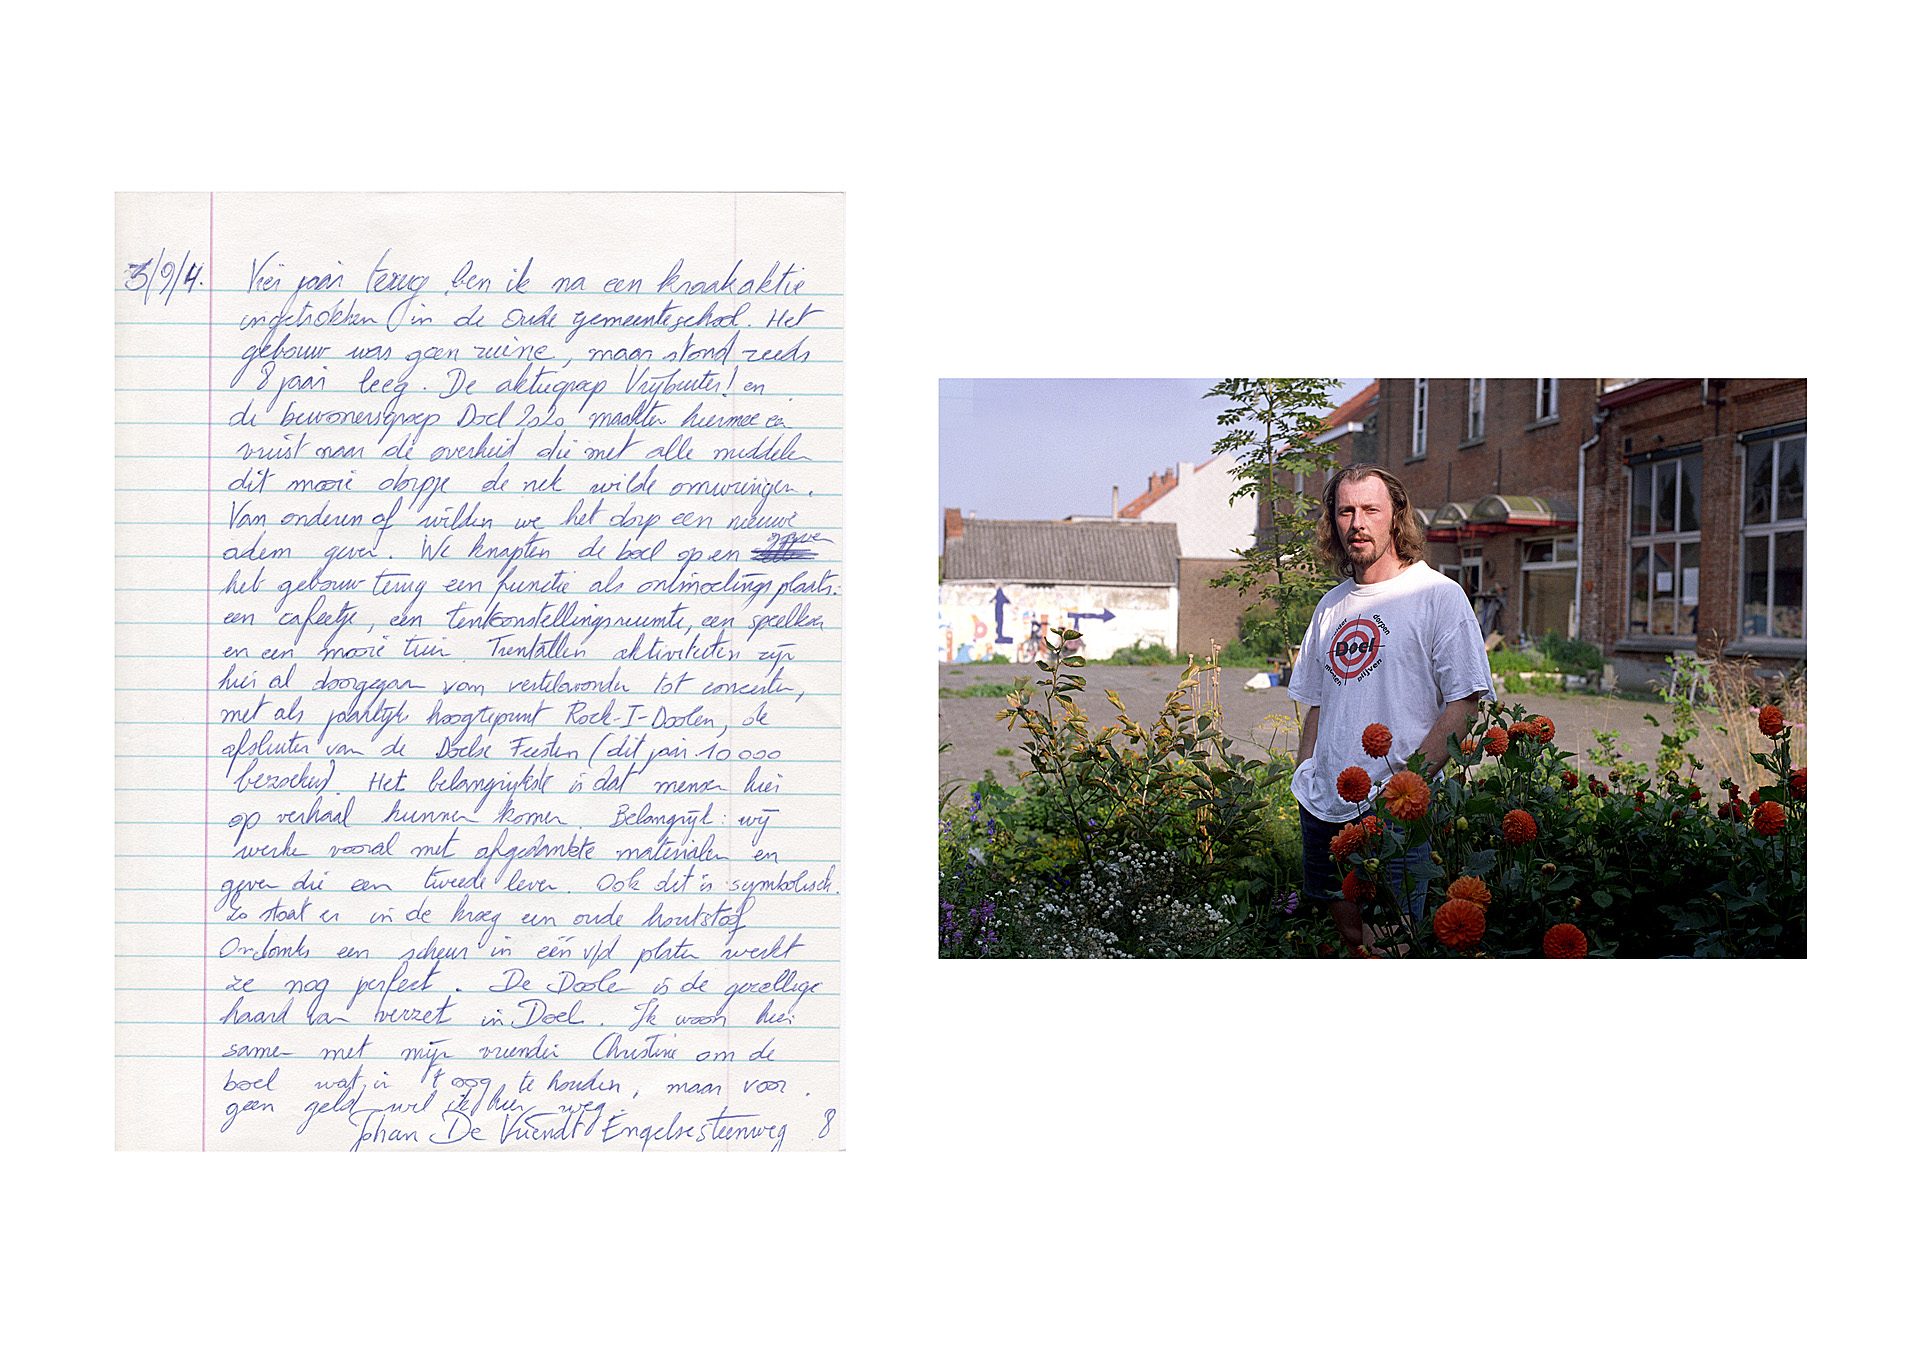 3/9/4. Vier jaar terug ben ik na een kraakaktie
ingetrokken in de oude gemeenteschool. Het
gebouw was geen ruïne, maar stond reeds
8 jaar leeg. De aktiegroep Vrijbuiter! en
de bewonersgroep Doel 2020 maakten hiermee een
vuist naar de overheid die met alle middelen
dit mooie dorpje de nek wilde omwringen.
Van onderen af wilden we het dorp een nieuwe
adem geven. We knapten de boel op en gaven
het gebouw terug een functie als ontmoetingsplaats:
een cafeetje, een tentoonstellingsruimte, een speelkan
en een mooie tuin. Tientallen aktiviteiten zijn
hier al doorgegaan van vertelavonden tot concerten,
met als jaarlijks hoogtepunt Rock-I-Doolen, de
afsluiter van de Doelse Feesten (dit jaar 10 000
bezoekers). Het belangrijkste is dat mensen hier
op verhaal kunnen komen. Belangrijk: wij
werken vooral met afgedankte materialen en
geven die een tweede leven. Ook dit is symbolisch.
Zo staat er in de kroeg een oude houtstoof
Ondanks een scheur in één v/d platen werkt
ze nog perfect. De Doolen is de gezellige
haard van verzet in Doel. Ik woon hier
samen met mijn vriendin Christine om de
boel wat in 't oog te houden, maar voor
geen geld wil ik hier weg.
Johan De Vriendt Engelsesteenweg 8
dorpen
Doel
moeten
blijven